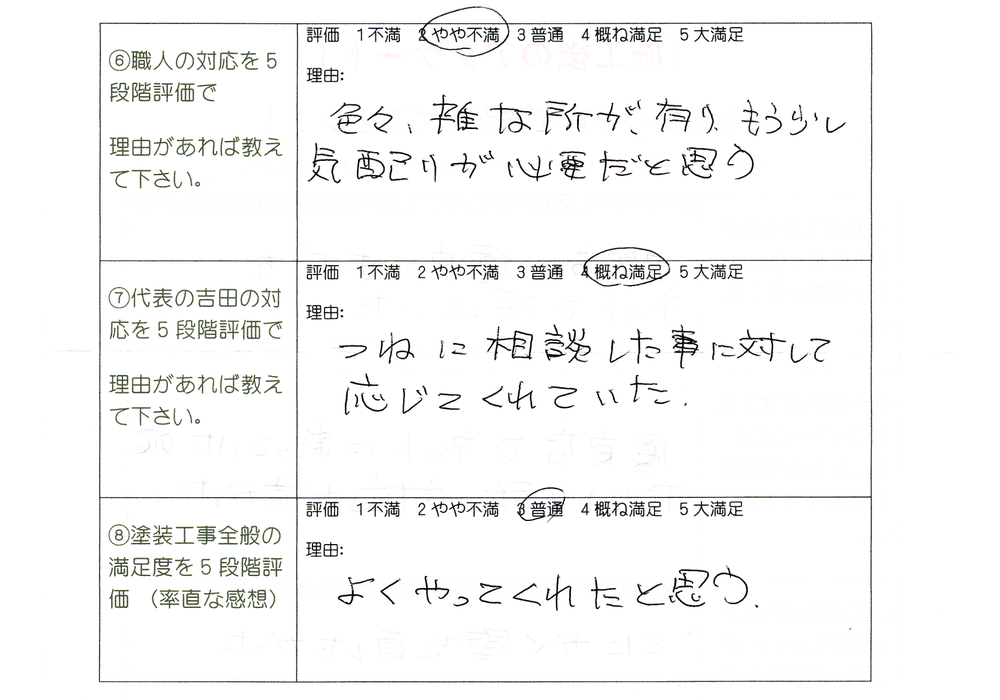 ⑥職人の対応を5
段階評価で
理由があれば教え
て下さい。
評価 1不満 2やや不満 3普通 4概ね満足 5大満足
理由:
色々、雑な所が、有り、もう少し
気配りが必要だと思う
⑦代表の吉田の対
応を5段階評価で
理由があれば教え
て下さい。
評価 1不満 2やや不満 3普通 4概ね満足 5大満足
理由:
つねに相談した事に対して
応じてくれていた.
⑧塗装工事全般の
満足度を5段階評
価 (率直な感想)
評価 1不満 2やや不満 3普通 4概ね満足 5大満足
理由:
よくやってくれたと思う.